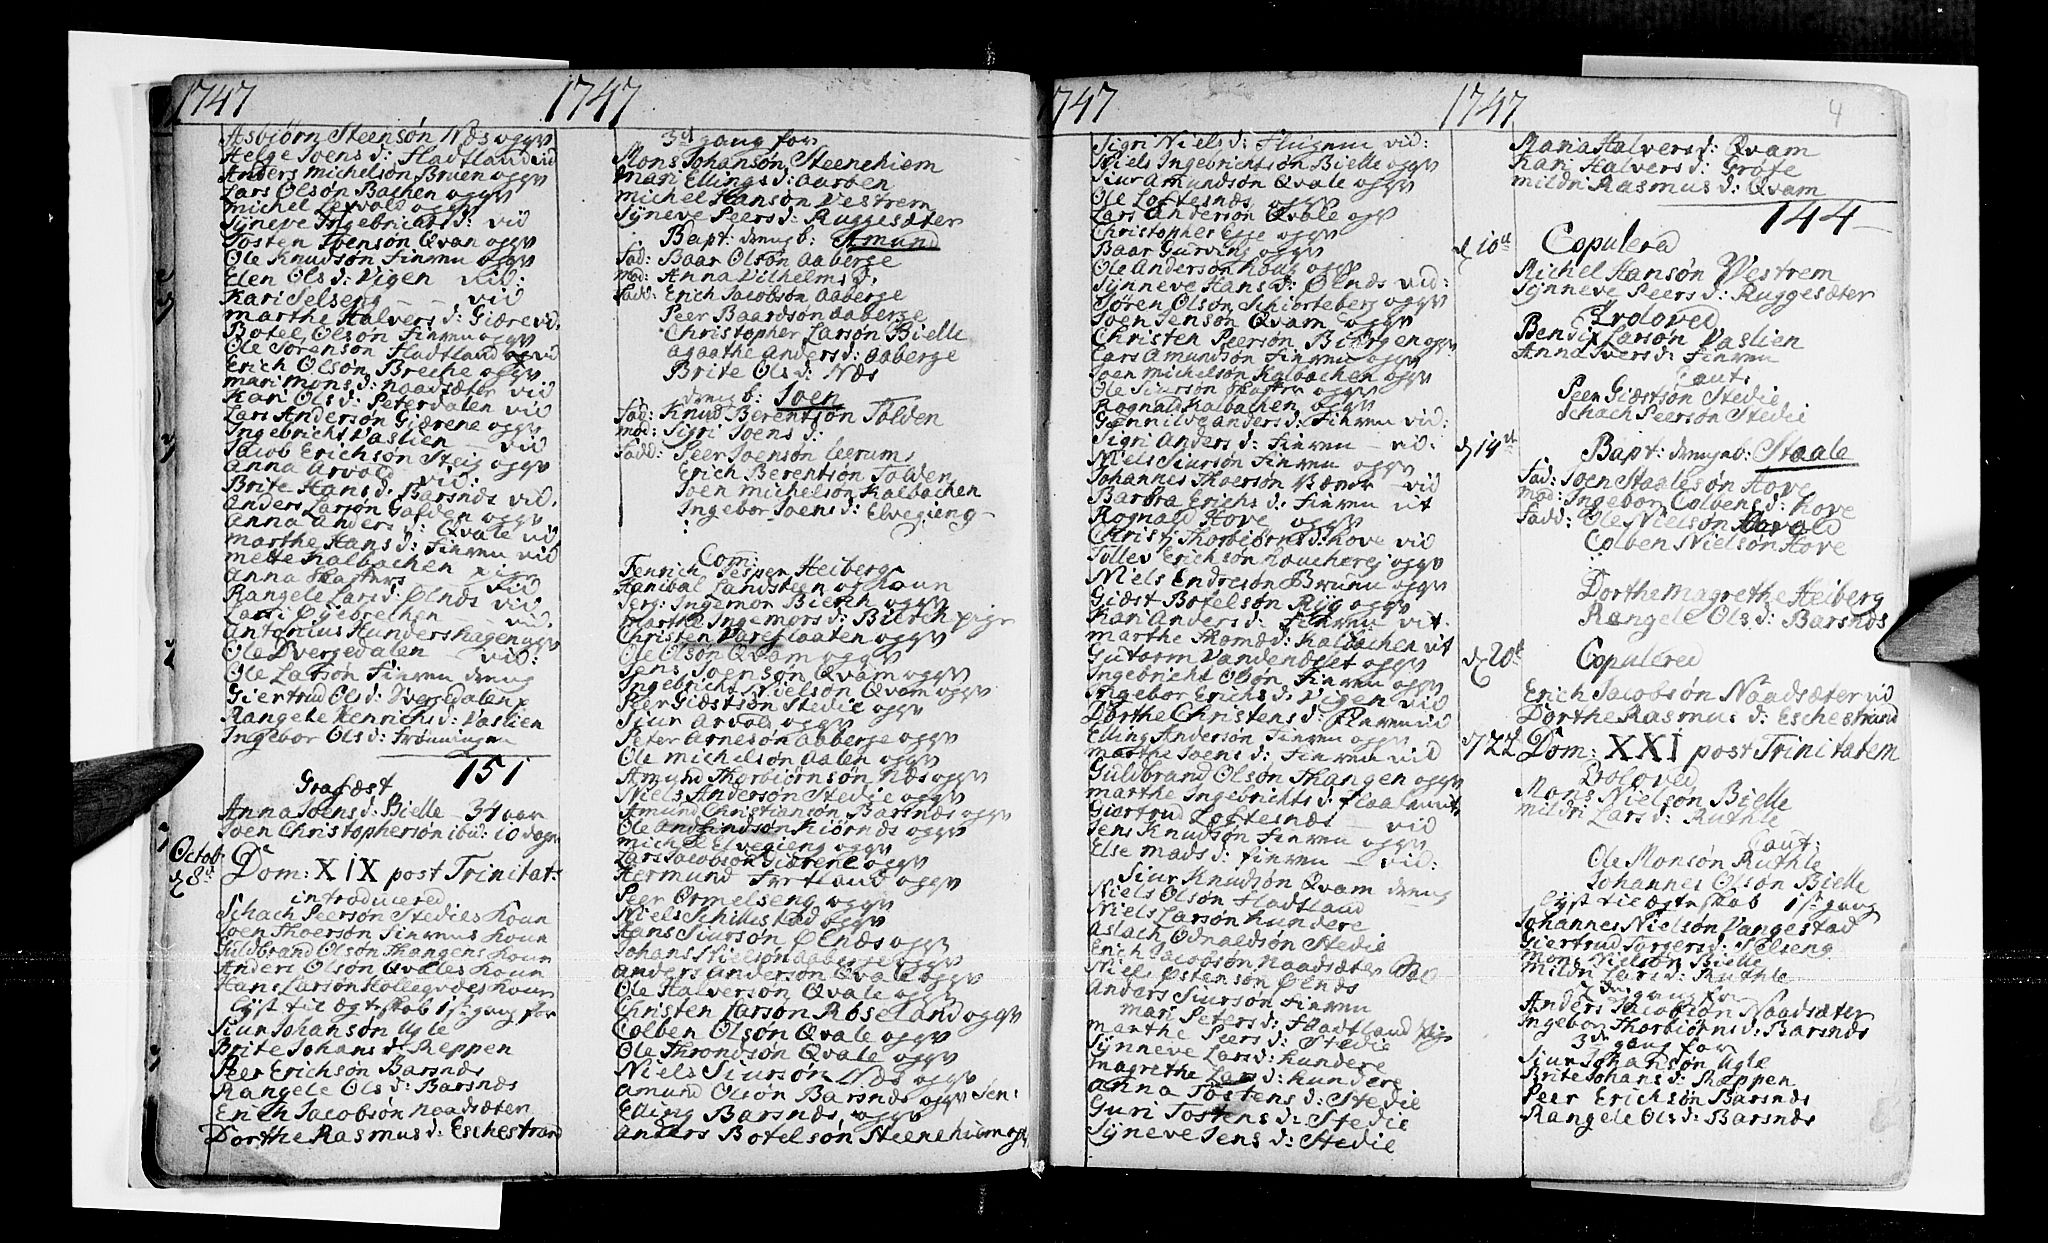 1747
Asbiørn Steensøn Næs oggv
Helge Joens d: Fladtland vid
Anders Michelsøn Bruen oggv
Lars Olsøn Bachen oggv
Michel oggv
Synneve Ingebricts d: vid
Tosten Joensøn Qvam oggv
Ole Knudsøn Finven oggv
Elen Ols d: Vigen vid:
Kari Selseng – – vid
Marthe Halvers d: Giære vid.
Botel Olsøn Finven oggv
Ole Sørensøn Fladtland
Erich Olsøn Breche oggv
Mari Mons d: Naadsæter vid
Kari Ols d: Peterdalen vid
Lars Andersøn Giærene oggv
Ingebricht Vaslien – vid
Jacob Erichsøn Steig oggv
Anna Arvold vid:
Brite Hans d: Barsnæs vid.
Anders Larsøn oggv
Anna Anders d: Qvale vid
Marthe Hans d: Finven vid
Mette Kalbachen
Anna
Rangele Lars d: Ølnæs vid
Øyebrechen – vid.
Antonius Hundershagen oggv
Ole Dvergedalen – vid:
Ole Larsøn Finven dreng
Giertrud Ols d: Dvergedalen
Rangele Henrichs d: Vaslien
Ingebor Ols d: Trønningen
151
Grafæst
Anna Joens d: Bielle – 34 aar
Joen Christophersøn ibid: 10 dage
Octob:
d 8d Dom: XIX post Trinitat:
introducered
Schach Peersøn Stedies Konn
Joen Thoersøn Finvens Konn
Guldbrand Olsøn Thangens Konn
Anders Olsøn Qvales Konn
Hans Larsøn Konn
Lyst til ægteskab 1st gang for
Siur Johansøn Ugle
Brite Johans d: Reppen
Peer Erichsøn Barsnæs
Rangele Ols d: Barsnæs
Erich Jacobsøn Naadsæter
Dorthe Rasmus d: Eschestrand
1747
3d gang for
Mons Johansøn Steenehiem
Mari Ellings d: Aarøen
Michel Hansøn Vestrem
Synneve Peers d: Ruggesæter
Bapt: dreng b: Amund
Fad: Baar Olsøn Aaberge
Mod: Anna Vilhelms d:
Fadd: Erich Jacobsøn Aaberge
Peer Baardsøn Aaberge
Christopher Larsøn Bielle
Agaathe Anders d: Aaberge
Brite Ols d: Næs
dreng b: Joen
Fad: Knud Berentsøn Tolden
Mod: Sigri Joens d:
Fadd: Peer Joensøn Leerum
Erich Berentsøn Tolden
Joen Michelsøn Kalbachen
Ingebor Joens d: Elvegieng –
Com:
Fenrich Jesper Heiberg
Hanibal Landsteen og Konn
Serg: Ingemor Bierch oggv
Marthe Ingemors d: Bierch pige
Christen oggv
Ole Olsøn Qvam oggv
Jens Joensøn Qvam oggv
Ingebricht Nielsøn Qvam oggv
Peer Giæstsøn Stedie oggv
Siur Arvold oggv
Peter Arnesøn Aaberge oggv
Ole Michelsøn Dalen oggv
Amund Thorbiørnsøn Næs oggv
Niels Andersøn Stedie oggv
Amund Christiansøn Barsnæs oggv
Ole Kiørnæs oggv
Michel Elvegieng oggv
Lars Jacobsøn Giærene oggv
Hermund oggv
Peer Ormelseng oggv
Niels oggv
Hans Siursøn Ølnæs oggv
Johans Nielsøn Aaberge oggv
Anders Andersøn Qvale oggv
Ole Halversøn Qvale oggv
Christen Larsøn Røseland oggv
Colben Olsøn Qvale oggv
Ole Throndsøn Qvale oggv
Niels Siursøn Næs oggv
Amund Olsøn Barsnæs oggv Sen:
Elling Barsnæs oggv
Anders Botelsøn Steenehiem
1747
Sigri Niels d: Flugem vid:
Niels Ingebrichtsøn Bielle oggv
Siur Amundsøn Qvale oggv
Ole Loftesnæs oggv
Lars Andersøn Qvale oggv
Christopher Egge oggv
Baar Gurvin oggv
Ole Andersøn oggv
Synneve Hans d: Ølnæs vid:
Søren Olsøn Schiorteberg oggv
Joen Jensøn Qvam oggv
Christen Peersøn Biørgen oggv
Lars Amundsøn Finven oggv
Joen Michelsøn Kalbachen oggv
Ole Siursøn oggv
Rognald Kalbachen oggv
Gunnilde Anders d: Finven vid
Sigri Anders d: Finven – vid:
Niels Siursøn Finven oggv
Johannes Thoersøn – vid
Barbra Erichs d: Finven vt
Rognald Hove oggv
Thorbiørns d: Hove vid
Tollev Erichsøn oggv
Niels Endresøn Bruun oggv
Giæst Botelsøn Ryg oggv
Kari Anders d: Finven vt.
Marthe Thomæ d: Kalbachen vt
Gutorm oggv
Ingebricht Olsøn Finven oggv
Ingebor Erichs d: Vigen vid
Dorthe Christens d: Finven vid
Elling Andersøn Finven oggv
Marthe Joens d: Finven vid
Guldbrand Olsøn Thangen oggv
Marthe Ingebrichts d:
Giertrud Loftesnæs – vid
Jens Knudsøn Finven oggv
Else Mads d: Finven – vid:
Siur Knudsøn Qvam dreng
Niels Olsøn Fladtland
Niels Larsøn Hundere
Aslach Odnaldsøn Stedie
Erich Jacobsøn Naadsæter
Niels Østensøn Ølnæs
Anders Siursøn Finven
Mari Peters d: Fladtland Pige
Marthe Peers d: Stedie
Synneve Lars d: Hundere
Magrethe Lars d: Hundere
Anna Tostens d: Stedie
Guri Tostens d: Stedie
Synneve Jens d: Stedie
1747 4
Maria Halvers d: Qvam
Kari Halvers d: Grøte
Mildri Rasmus d: Qvam
144 –
d 10d Copulered
Michel Hansøn Vestrem
Synneve Peers d: Ruggesæter
Troloved
Bendix Larsøn Vaslien
Anna Ivers d: Finven
Caut:
Peer Giæstsøn Stedie
Schach Peersøn Stedie
d 14d Bapt: dreng b: Staale
Fad: Joen Staalesøn Hove
Mod: Ingebor Colbens d: Hove
Fadd: Ole Nielsøn Arvold
Colben Nielsøn Hove
Dorthe Magrethe Heiberg
Rangele Ols d: Barsnæs
d 20d Copulered
Erich Jacobsøn Naadsæter vid
Dorthe Rasmus d: Eschestrand
d 22 Dom: XXI post Trinitatem
Trolovet
Mons Nielsøn Bielle
Mildri Lars d: Ruthle
Caut:
Ole Monsøn Ruthle
Johannes Olsøn Bielle
Lyst til ægteskab 1st gang
Johannes Nielsøn Vangestad
Giertrud d: Selseng
Mons Nielsøn Bielle
Mildri Lars d: Ruthle
2den gang for
Anders Jacobsøn Naadsæter
Ingebor Thorbiørns d: Barsnæs
3de gang for
Siur Johansøn Ugle
Brite Johans d: Reppen
Peer Erichsøn Barsnæs
Rangele Ols d: Barsnæs